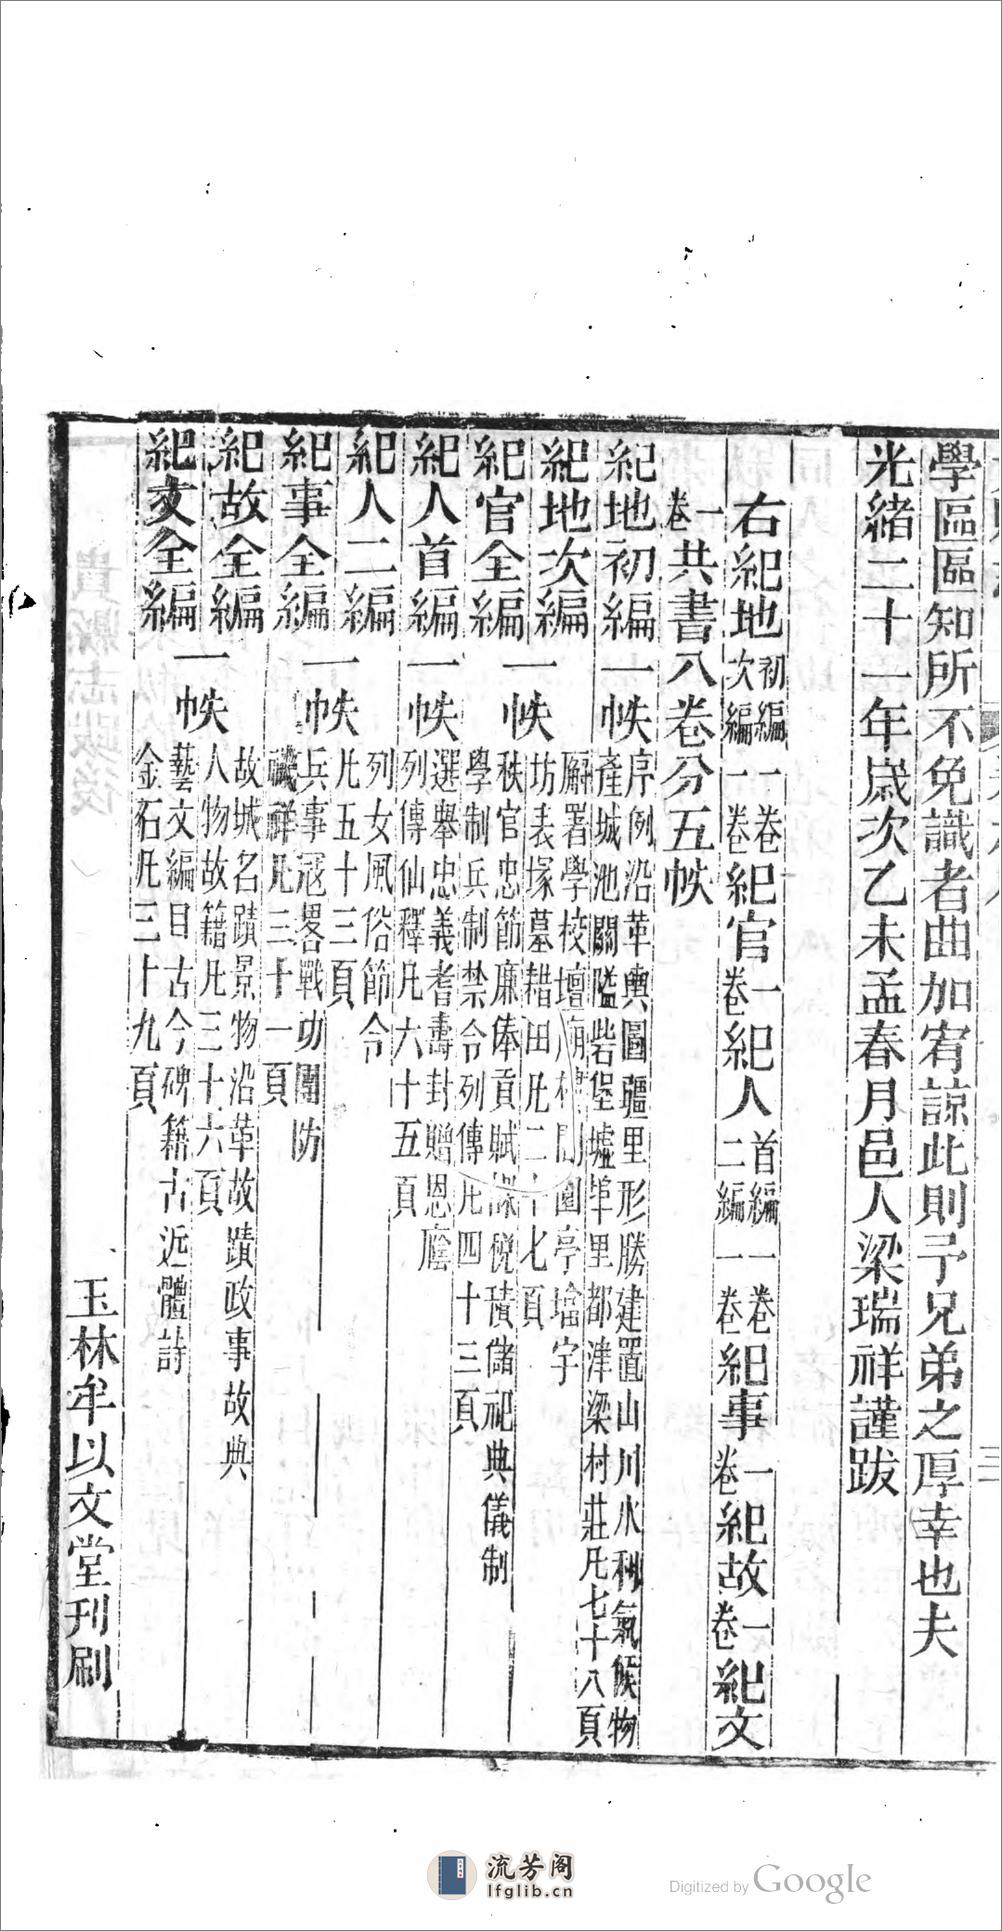 學區區知所不免識者曲加宥諒此則予兄弟之厚幸也夫
光緒二十一年歲次乙未孟春月邑人梁瑞祥謹跋
右紀地初編一卷次編一卷紀官一卷紀人首編一卷二編一卷紀事一卷紀故一卷紀文
一卷共書八卷分五帙
紀地初編一帙序例沿革輿圖疆里形勝建置山川水利氣候物
產城池關隘砦堡墟埠里都津梁村莊凡七十八頁
紀地次編
廨署學校壇廟園亭壇宇
坊表塚墓耤田凡二十七頁
紀官全編一帙秩官忠節廉俸貢賦課稅積儲祀典儀制
學制兵制禁令列傳凡四十三頁
紀人首編一帙選舉忠義耆壽封贈恩廕
列傳仙釋凡六十五頁
紀人二編
列女風俗節令
凡五十三頁
紀事全編一帙兵事寇畧戰功團防
禨祥凡三十一頁
紀故全編
故城名蹟景物沿革故蹟政事故典
人物故籍凡三十六頁
紀文全編一帙藝文編目古今碑籍古近體詩
金石凡三十九頁
玉林牟以文堂刊刷
流芳阁
lfglib.cn
Digitized by Google